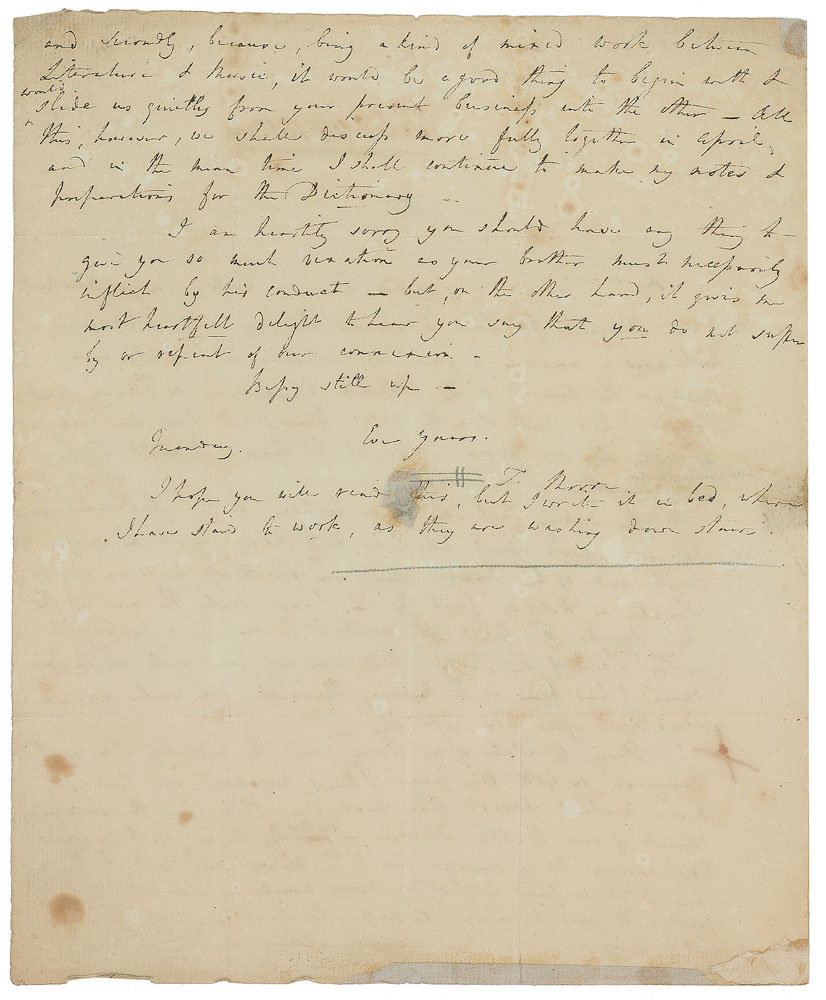 and secondly, because, being a kind of mixed work between
Literature & Music, it would be a good thing to begin with &
would
slide us quietly from your present business into the other — All
this, however, we shall discuss more fully together in April,
and in the mean time I shall continue to make my notes &
preparations for the Dictionary —
I am heartily sorry you should have any thing to
give you so much vexation as your brother must necessarily
inflict by his conduct — but, on the other hand, it gives me
most heartfelt delight to hear you say that you do not suffer
by or repent of our connexion.
Bessy still up —
Monday. Ever Yours.
T. Moore
I hope you will read this, but I wrote it in bed, where
I have staid to work, as they are washing down stairs.